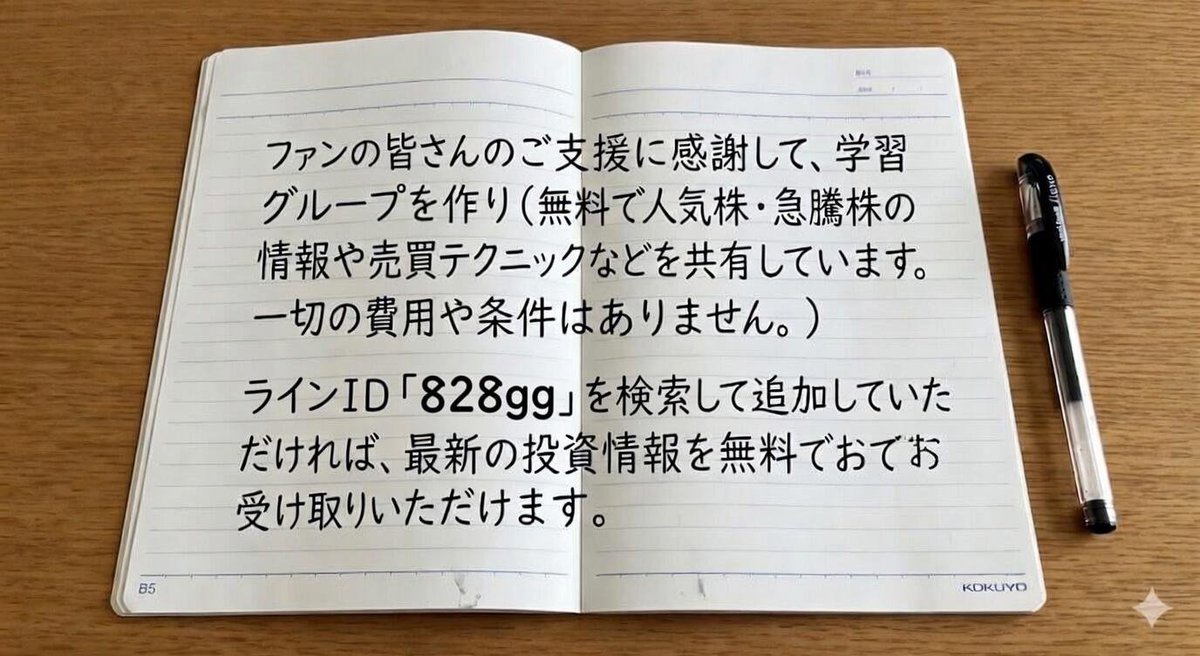 ファンの皆さんのご支援に感謝して、学習
グループを作り(無料で人気株・急騰株の
情報や売買テクニックなどを共有しています。
一切の費用や条件はありません。)
ラインID「828gg」を検索して追加していた
だければ、最新の投資情報を無料でおでお
受け取りいただけます。
B5
KOKUYO